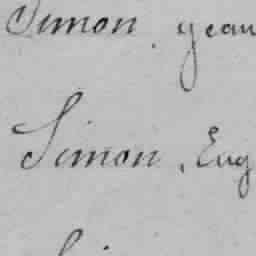 Simon, Jean
Simon, Eug